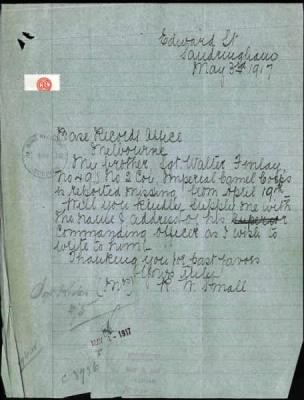 Edward St
Sandringham
May 3rd 1917
Base Records Office
Melbourne
My brother, Sgt Walter Finlay
No 2 Coy. Imperial Camel Corps
is reported missing from April 19th
Will you kindly supply me with
the name & address of his superior
commanding officer as I wish to
write to him.
Thanking you for past favors
Yours truly
(Mrs) R. W. Small
1917